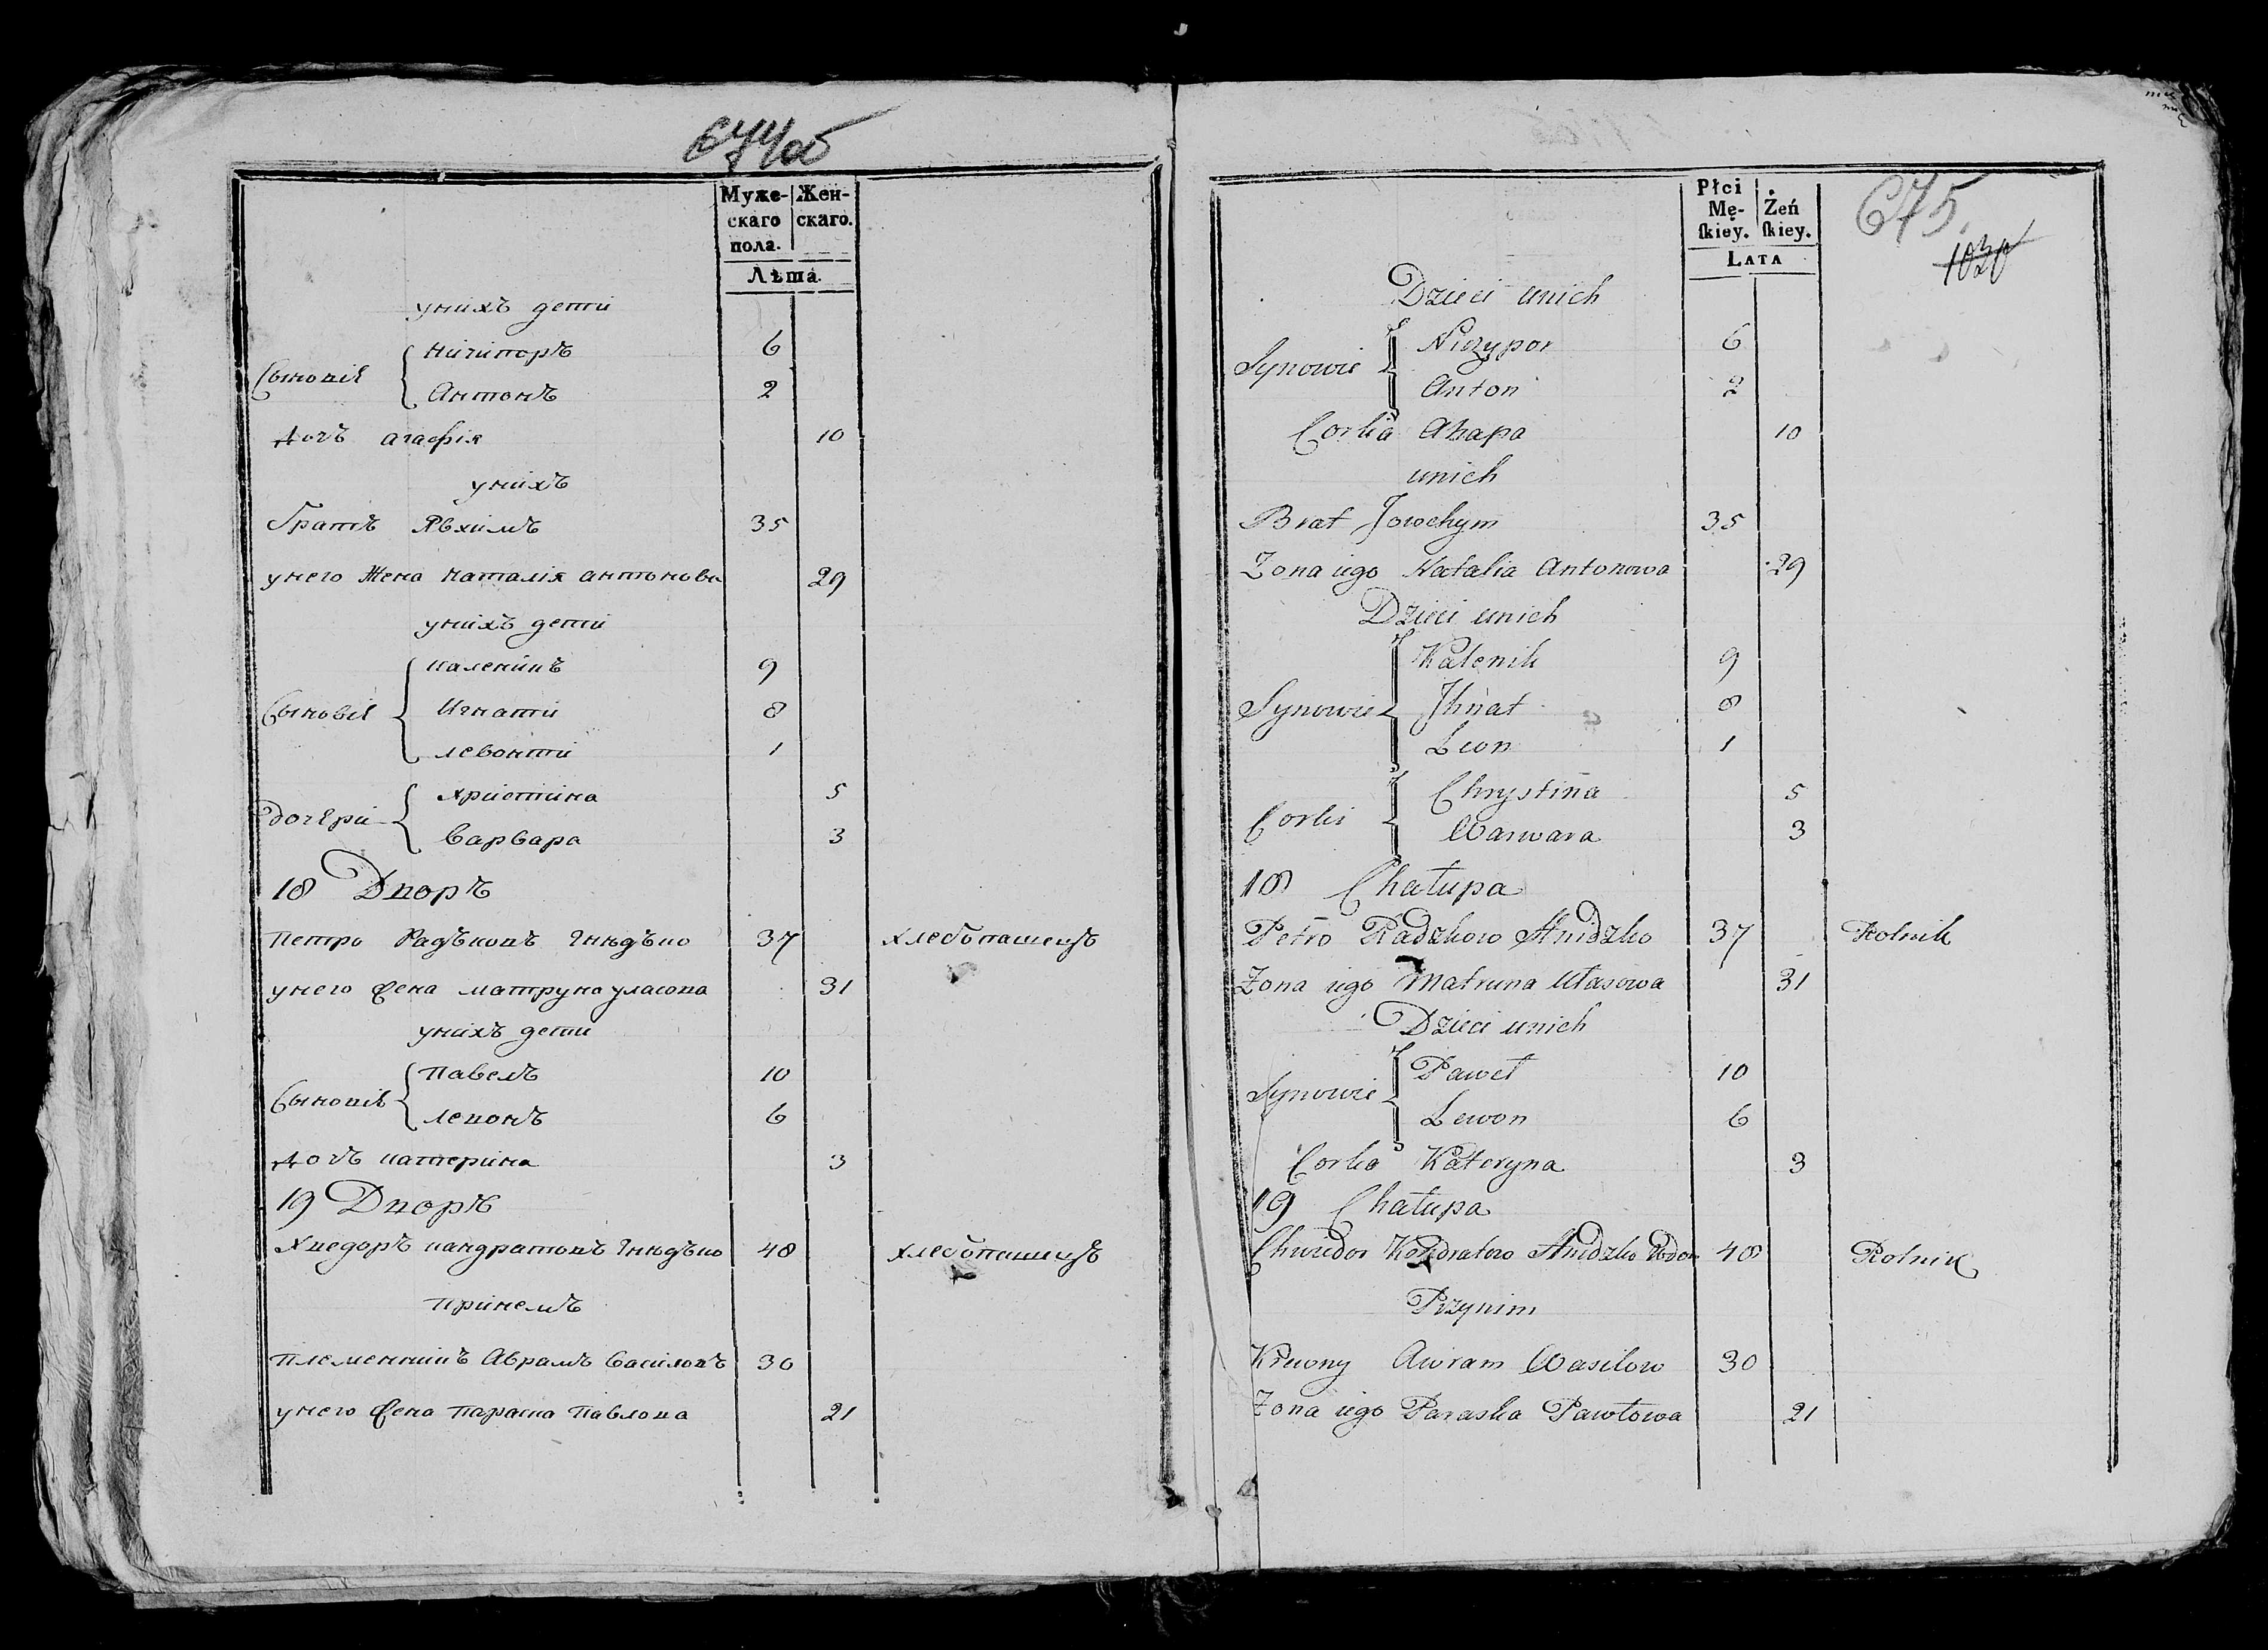 674об
Муже- Жен-
скаго скаго.
пола.
Лѣта
унихъ дети
Сыновiя
Нiчiпоръ 6
Антонъ 2
дочъ агафiя 10
унихъ
Братъ Явхимъ 35
унего Жена наталiя антонова 29
унихъ дети
каленiкъ 9
Сыновiя
Игнатiй 8
левонтiй 1
христiна 5
дочерi
Варвара 3
18 Дворъ
Петро Радъковъ Гнѣдъко 37 хлебопашецъ
унего жена матруна уласова 31
унихъ дети
Павелъ 10
Сыновiя
левонъ 6
дочъ катерiна 3
19 Дворъ
Хведоръ кандратовъ Гнѣдъко 48 хлебопашецъ
Прiнемъ
Племеннiкъ Аврамъ Васiловъ 30
унего жена Параска Павлова 21
675
1020
Płci Żeń
Mę- skiey.
skiey.
LATA
Dzieci unich
Niczypor 6
Synowie
Anton 2
Corka Ahapa 10
unich
Brat Jowchym 35
Zona iego Natalia Antonowa 29
Dzieci unich
Kalenik 9
Synowie Jhnat 8
Leon 1
Chrystina 5
Corki
Warwara 3
18 Chałupa
Petro Radzkow Hnidzko 37 Rolnik
Zona iego Matruna Ułasowa 31
Dzieci unich
Paweł 10
Synowie
Lewon 6
Corka Kateryna 3
19 Chałupa
Chwiedor Kondratow Hnidzko Wdow 48 Rolnik
Przynim
Krewny Awram Wasilow 30
Zona iego Paraska Pawłowa 21